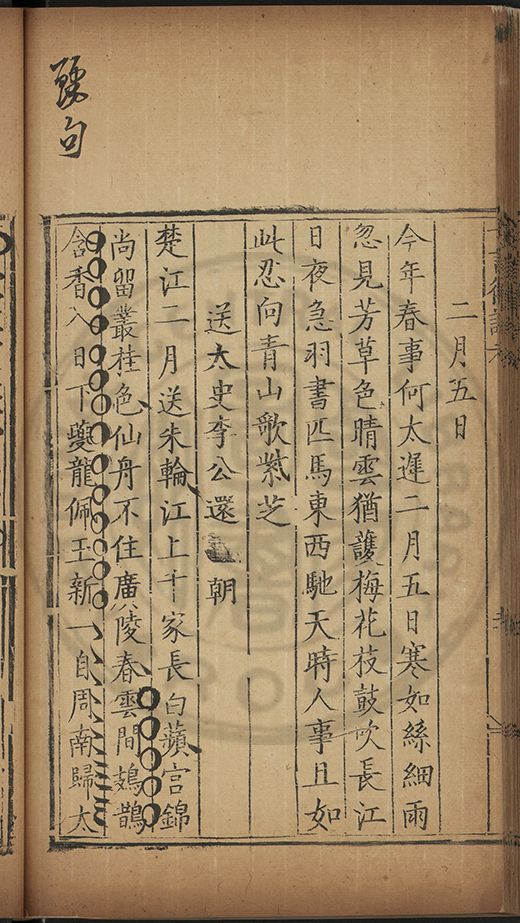 句
二月五日
今年春事何太遲二月五日寒如絲細雨
忽見芳草色晴雲猶護梅花枝鼓吹長江
日夜急羽書匹馬東西馳天時人事且如
此忍向青山歌紫芝
送太史李公還朝
楚江二月送朱輪江上千家長白蘋宮錦
尚留叢桂色仙舟不住廣陵春雲間鳷鵲
含香入日下夔龍佩玉新一自周南歸太